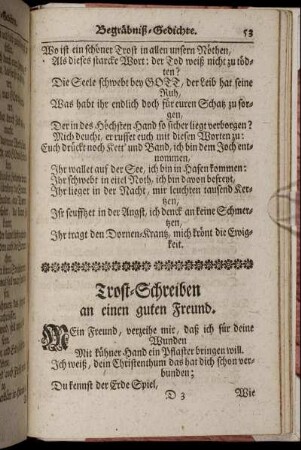 Begräbniß-Gedichte. 53
Wo ist ein schöner Trost in allen unsern Nöthen,
Als dieses starcke Wort: der Tod weiß nicht zu töd-
ten?
Die Seele schwebt bey GOTT, der Leib har seine
Ruh,
Was habt ihr endlich doch für euren Schatz zu sor-
gen,
Der in des Höchsten Hand so sicher liegt verborgen?
Mich deucht, er ruffet euch mit diesen Worten zu:
Euch drückt noch Kett' und Band, ich bin dem Joch ent-
nommen,
Ihr wallet auf der See, ich bin in Hafen kommen:
Ihr schwebt in eitel Noth, ich bin davon befreyt,
Ihr lieget in der Nacht, mir leuchten tausend Ker-
tzen,
Ihr seufftzet in der Angst, ich denck an keine Schmer-
tzen,
Ihr tragt den Dornen-Krantz, mich krönt die Ewig-
keit.
Trost-Schreiben
an einen guten Freund.
MEin Freund, verzeihe mir, daß ich für deine
Wunden
Mit kühner Hand ein Pflaster bringen will.
Ich weiß, dein Christenthum das hat dich schon ver-
bunden;
Du kennst der Erde Spiel,
D 3 Wie